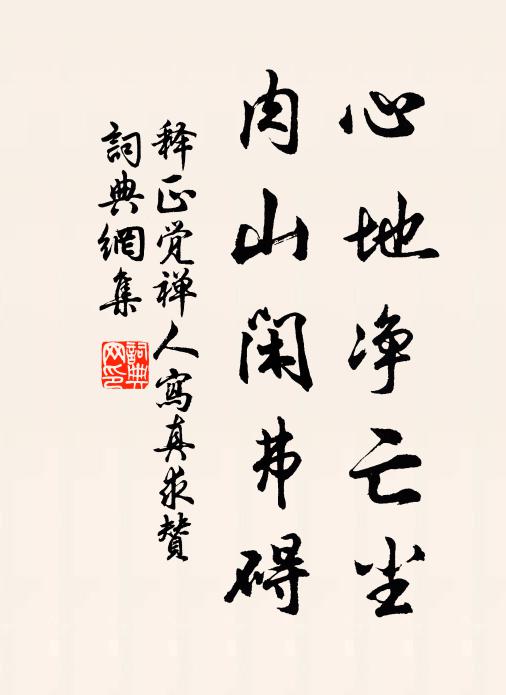 心地净亡尘
肉山闲弗碍
释正觉禅人寫真求贊
詞典網集
詞典网印